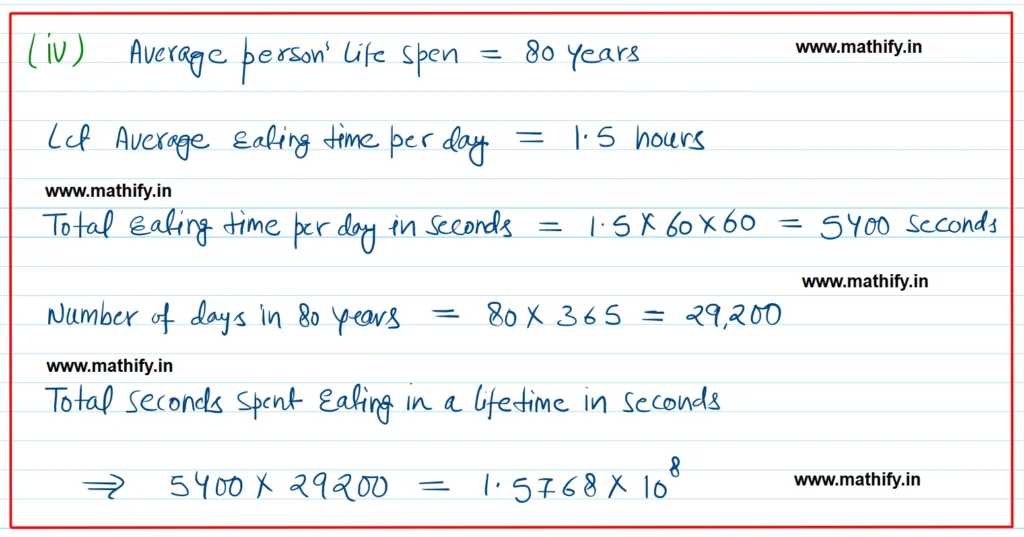 (iv) Average person' Life spen = 80 years
www.mathify.in
Let Average Eating time per day = 1.5 hours
www.mathify.in
Total Eating time per day in seconds = 1.5 X 60 X 60 = 5400 seconds
www.mathify.in
Number of days in 80 years = 80 X 365 = 29,200
www.mathify.in
Total seconds spent Eating in a lifetime in seconds
⇒ 5400 X 29200 = 1.5768 X 10⁸
www.mathify.in